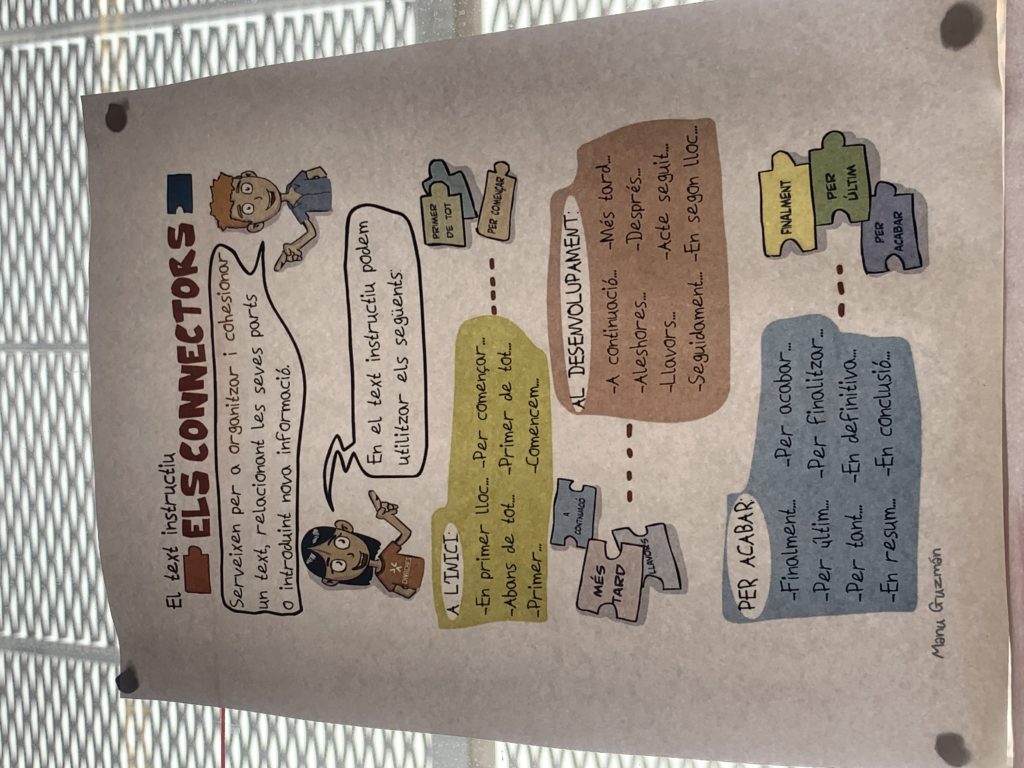 El text instructiu
ELS CONNECTORS
Serveixen per a organitzar i cohesionar
un text, relacionant les seves parts
o introduint nova informació.
En el text instructiu podem
utilitzar els següents
A L'INICI:
-En primer lloc... -Per començar...
-Abans de tot... -Primer de tot...
-Primer... -Comencem...
PRIMER
DE TOT
PER COMENÇAR
AL DESENVOLUPAMENT:
-A continuació... -Més tard...
-Aleshores... -Després...
-Llavors... -Acte seguit...
-Seguidament... -En segon lloc...
A
CONTINUACIÓ
MÉS
TARD
LLAVORS
PER ACABAR:
-Finalment... -Per acabar...
-Per últim... -Per finalitzar...
-Per tant... -En definitiva...
-En resum... -En conclusió...
FINALMENT
PER
ÚLTIM
PER
ACABAR
Manu Guzmán